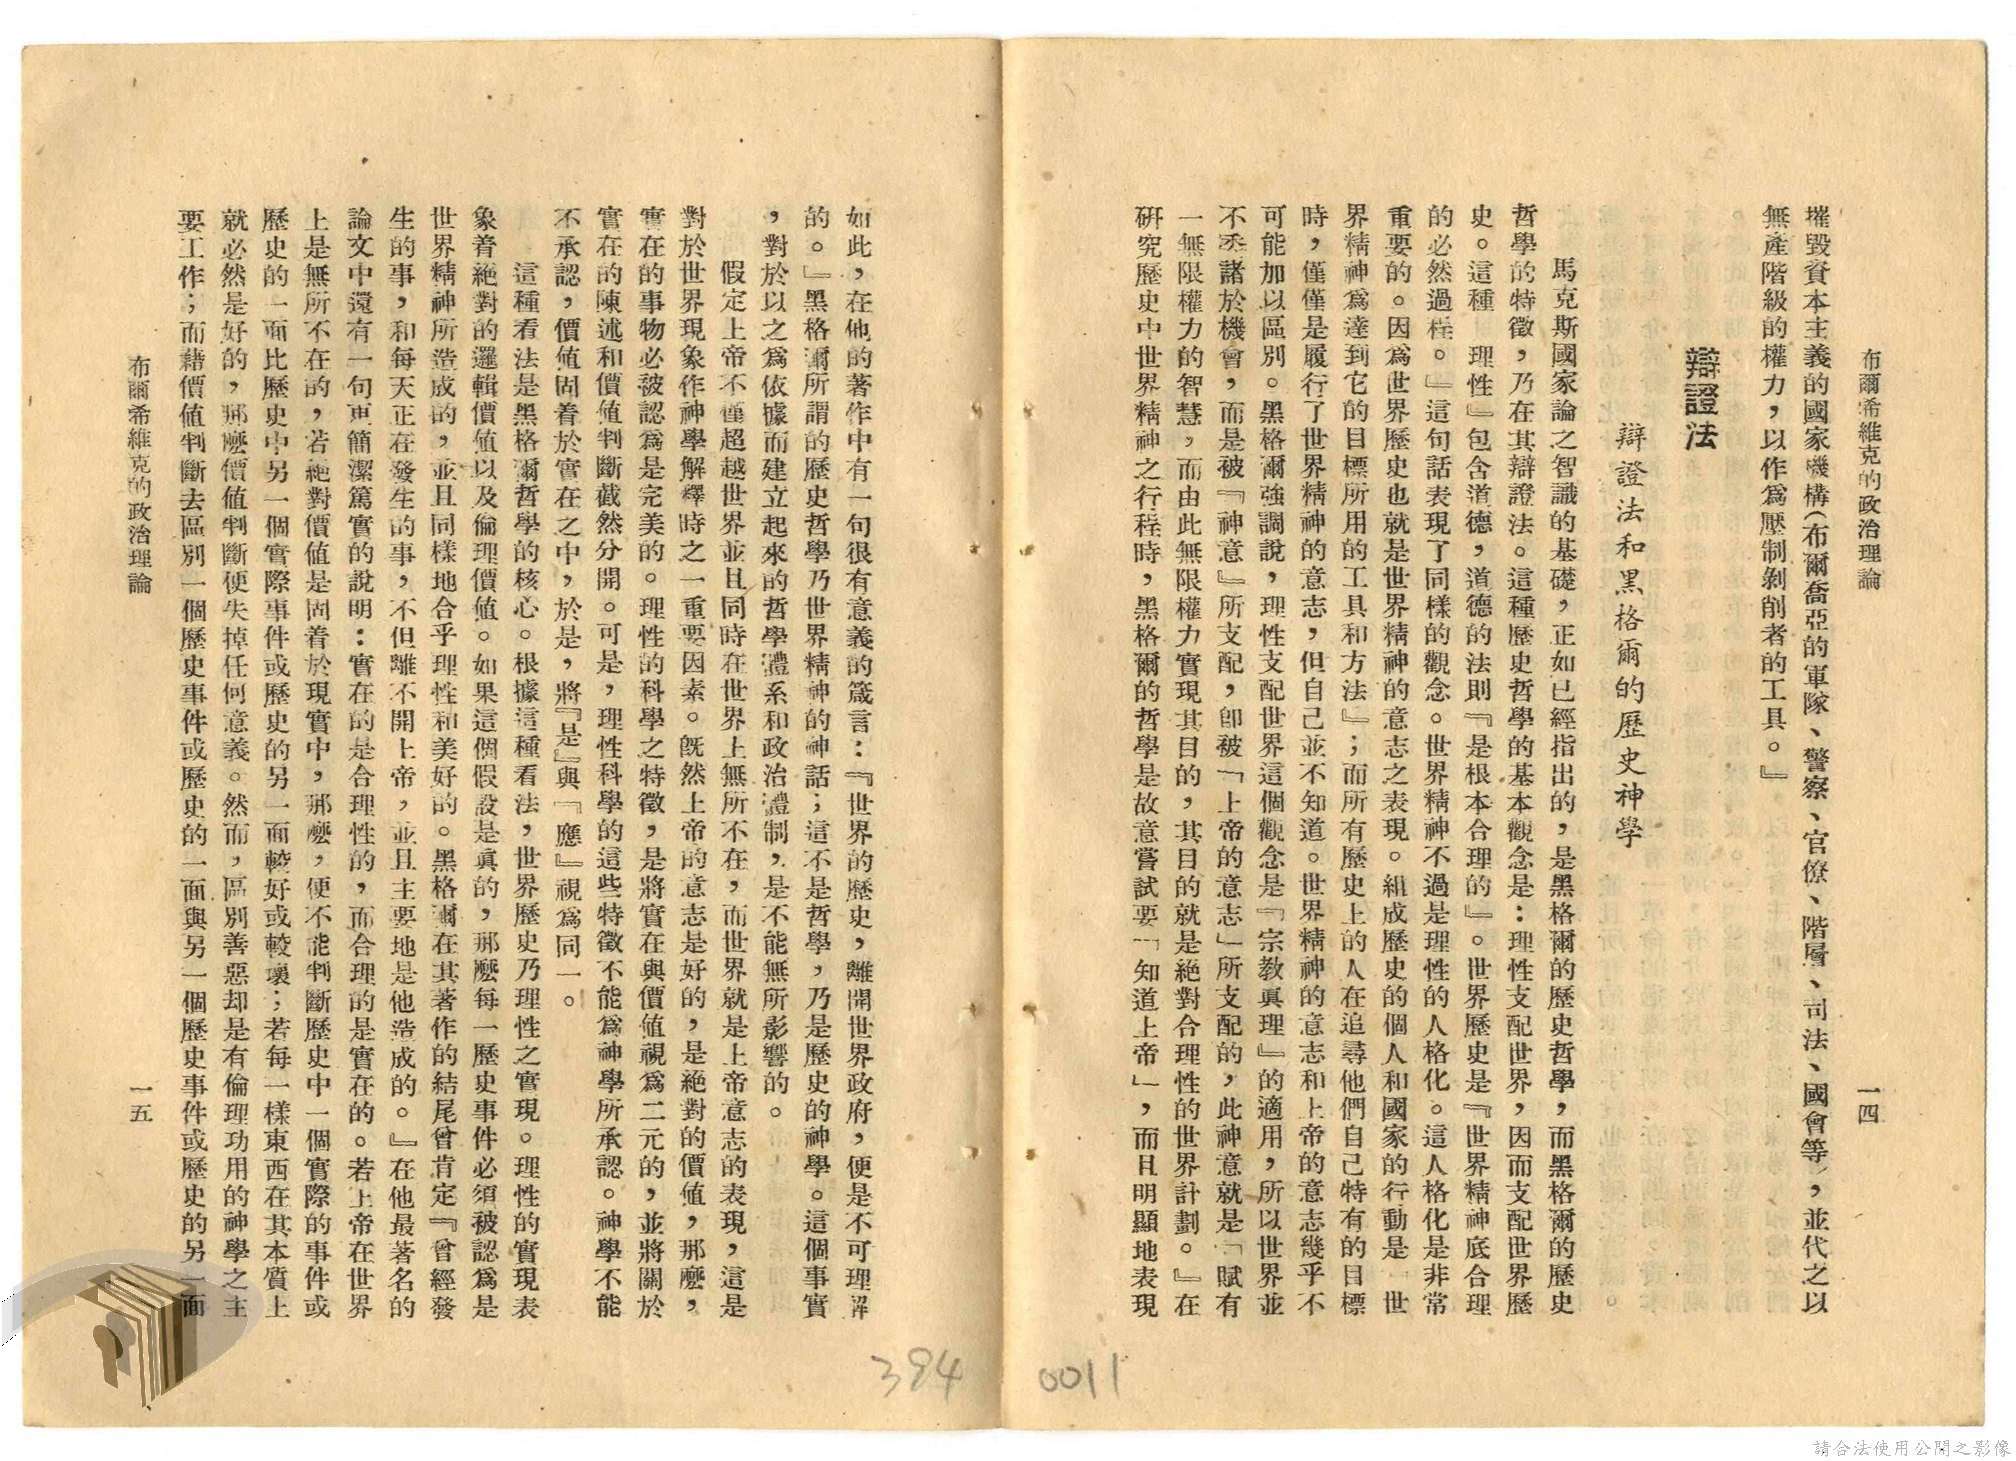 布爾希維克的政治理論
一四
摧毀資本主義的國家機構(布爾喬亞的軍隊、警察、官僚、階層、司法、國會等),並代之以
無產階級的權力,以作爲壓制剝削者的工具。』
辯證法
辯證法和黑格爾的歷史神學
馬克斯國家論之智識的基礎,正如已經指出的,是黑格爾的歷史哲學,而黑格爾的歷史
哲學的特徵,乃在其辯證法。這種歷史哲學的基本觀念是:理性支配世界,因而支配世界歷
史。這種『理性』包含道德,道德的法則『是根本合理的』。世界歷史是『世界精神底合理
的必然過程。』這句話表現了同樣的觀念。世界精神不過是理性的人格化。這人格化是非常
重要的。因爲世界歷史也就是世界精神的意志之表現。組成歷史的個人和國家的行動是『世
界精神爲達到它的目標所用的工具和方法』;而所有歷史上的人在追尋他們自己特有的目標
時,僅僅是履行了世界精神的意志,但自己並不知道。世界精神的意志和上帝的意志幾乎不
可能加以區別。黑格爾強調說,理性支配世界這個觀念是『宗教眞理』的適用,所以世界並
不委諸於機會,而是被『神意』所支配,卽被「上帝的意志」所支配的,此神意就是「賦有
一無限權力的智慧,而由此無限權力實現其目的,其目的就是絕對合理性的世界計劃。』在
研究歷史中世界精神之行程時,黑格爾的哲學是故意嘗試要「知道上帝」,而且明顯地表現
如此,在他的著作中有一句很有意義的箴言:『世界的歷史,離開世界政府,便是不可理解
的。』黑格爾所謂的歷史哲學乃世界精神的神話;這不是哲學,乃是歷史的神學。這個事實
,對於以之爲依據而建立起來的哲學體系和政治體制,是不能無所影響的。
假定上帝不僅超越世界並且同時在世界上無所不在,而世界就是上帝意志的表現,這是
對於世界現象作神學解釋時之一重要因素。旣然上帝的意志是好的,是絕對的價値,那麼,
實在的事物必被認爲是完美的。理性的科學之特徵,是將實在與價値視爲二元的,並將關於
實在的陳述和價値判斷截然分開。可是,理性科學的這些特徵不能爲神學所承認。神學不能
不承認,價値固着於實在之中,於是,將『是』與『應』視爲同一。
這種看法是黑格爾哲學的核心。根據這種看法,世界歷史乃理性之實現。理性的實現表
象着絕對的邏輯價値以及倫理價値。如果這個假設是眞的,那麼每一歷史事件必須被認爲是
世界精神所造成的,並且同樣地合乎理性和美好的。黑格爾在其著作的結尾曾肯定『曾經發
生的事,和每天正在發生的事,不但離不開上帝,並且主要地是他造成的。』在他最著名的
論文中還有一句更簡潔篤實的說明:實在的是合理性的,而合理的是實在的。若上帝在世界
上是無所不在的,若絕對價値是固着於現實中,那麼,便不能判斷歷史中一個實際的事件或
歷史的一面比歷史中另一個實際事件或歷史的另一面較好或較壞;若每一樣東西在其本質上
就必然是好的,那麼價値判斷便失掉任何意義。然而,區別善惡却是有倫理功用的神學之主
要工作;而藉價値判斷去區別一個歷史事件或歷史的一面與另一個歷史事件或歷史的另一面
布爾希維克的政治理論
一五
394
0011
請合法使用公開之影像